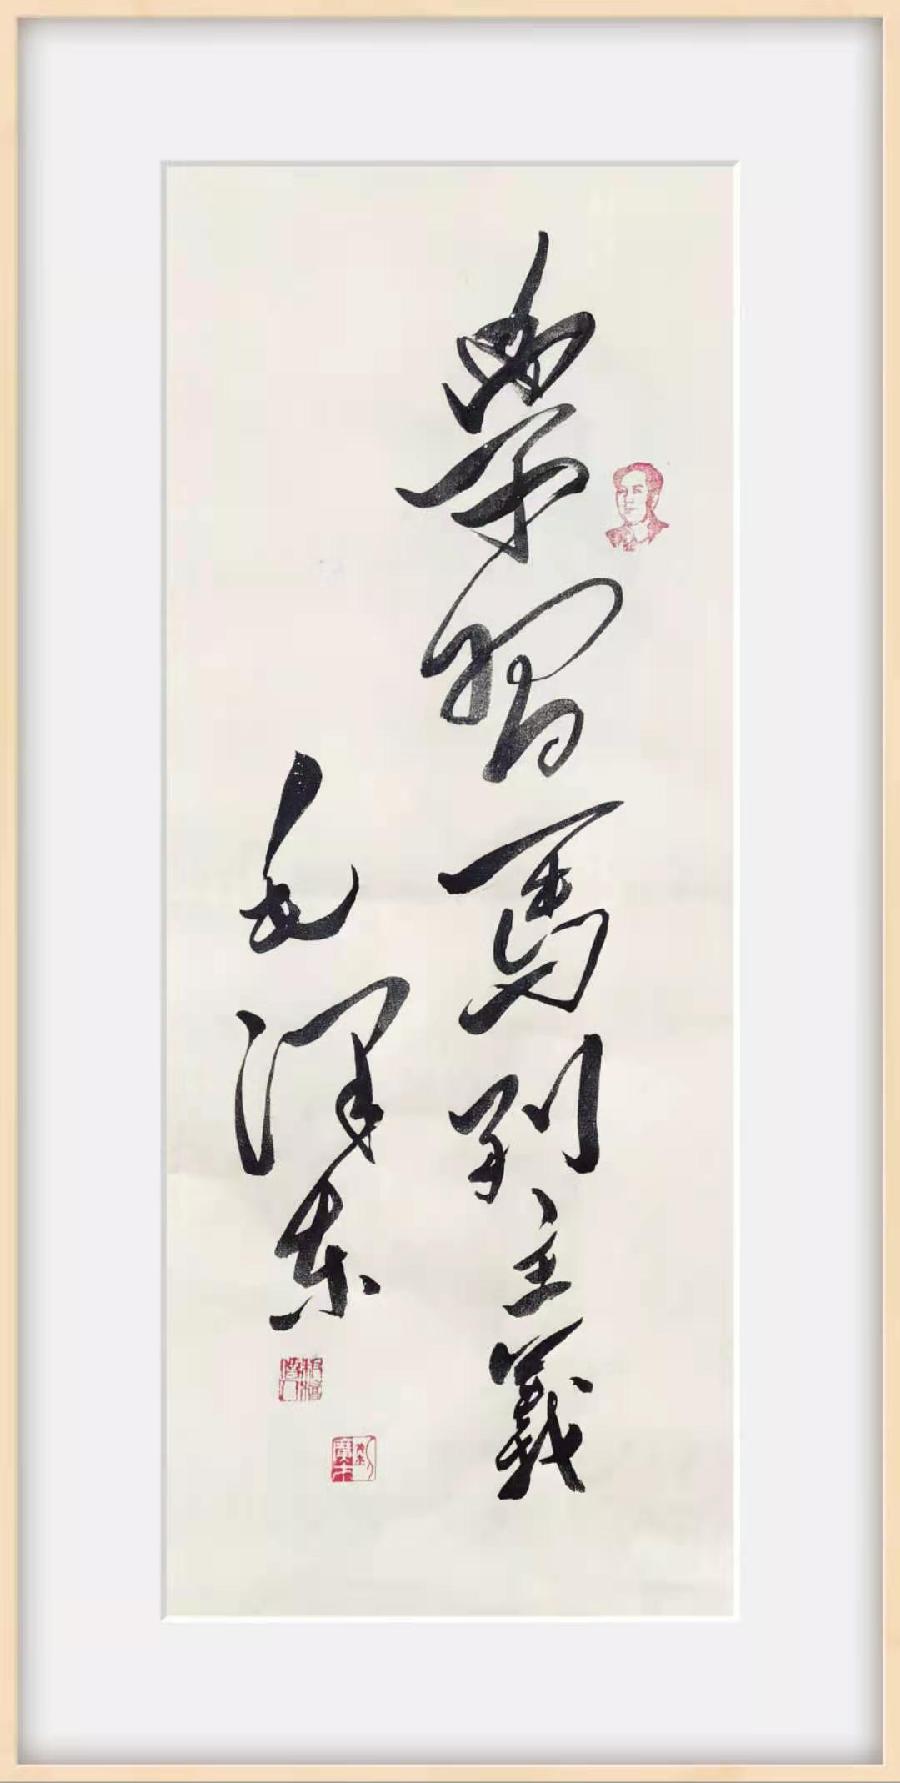 學習馬列主義
毛澤東